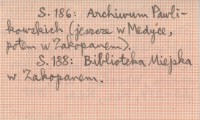 S. 186: Archiwum Pawli-
kowskich (jeszcze w Medyce,
potem w Zakopanem).
S. 188: Biblioteka Miejska
w Zakopanem.